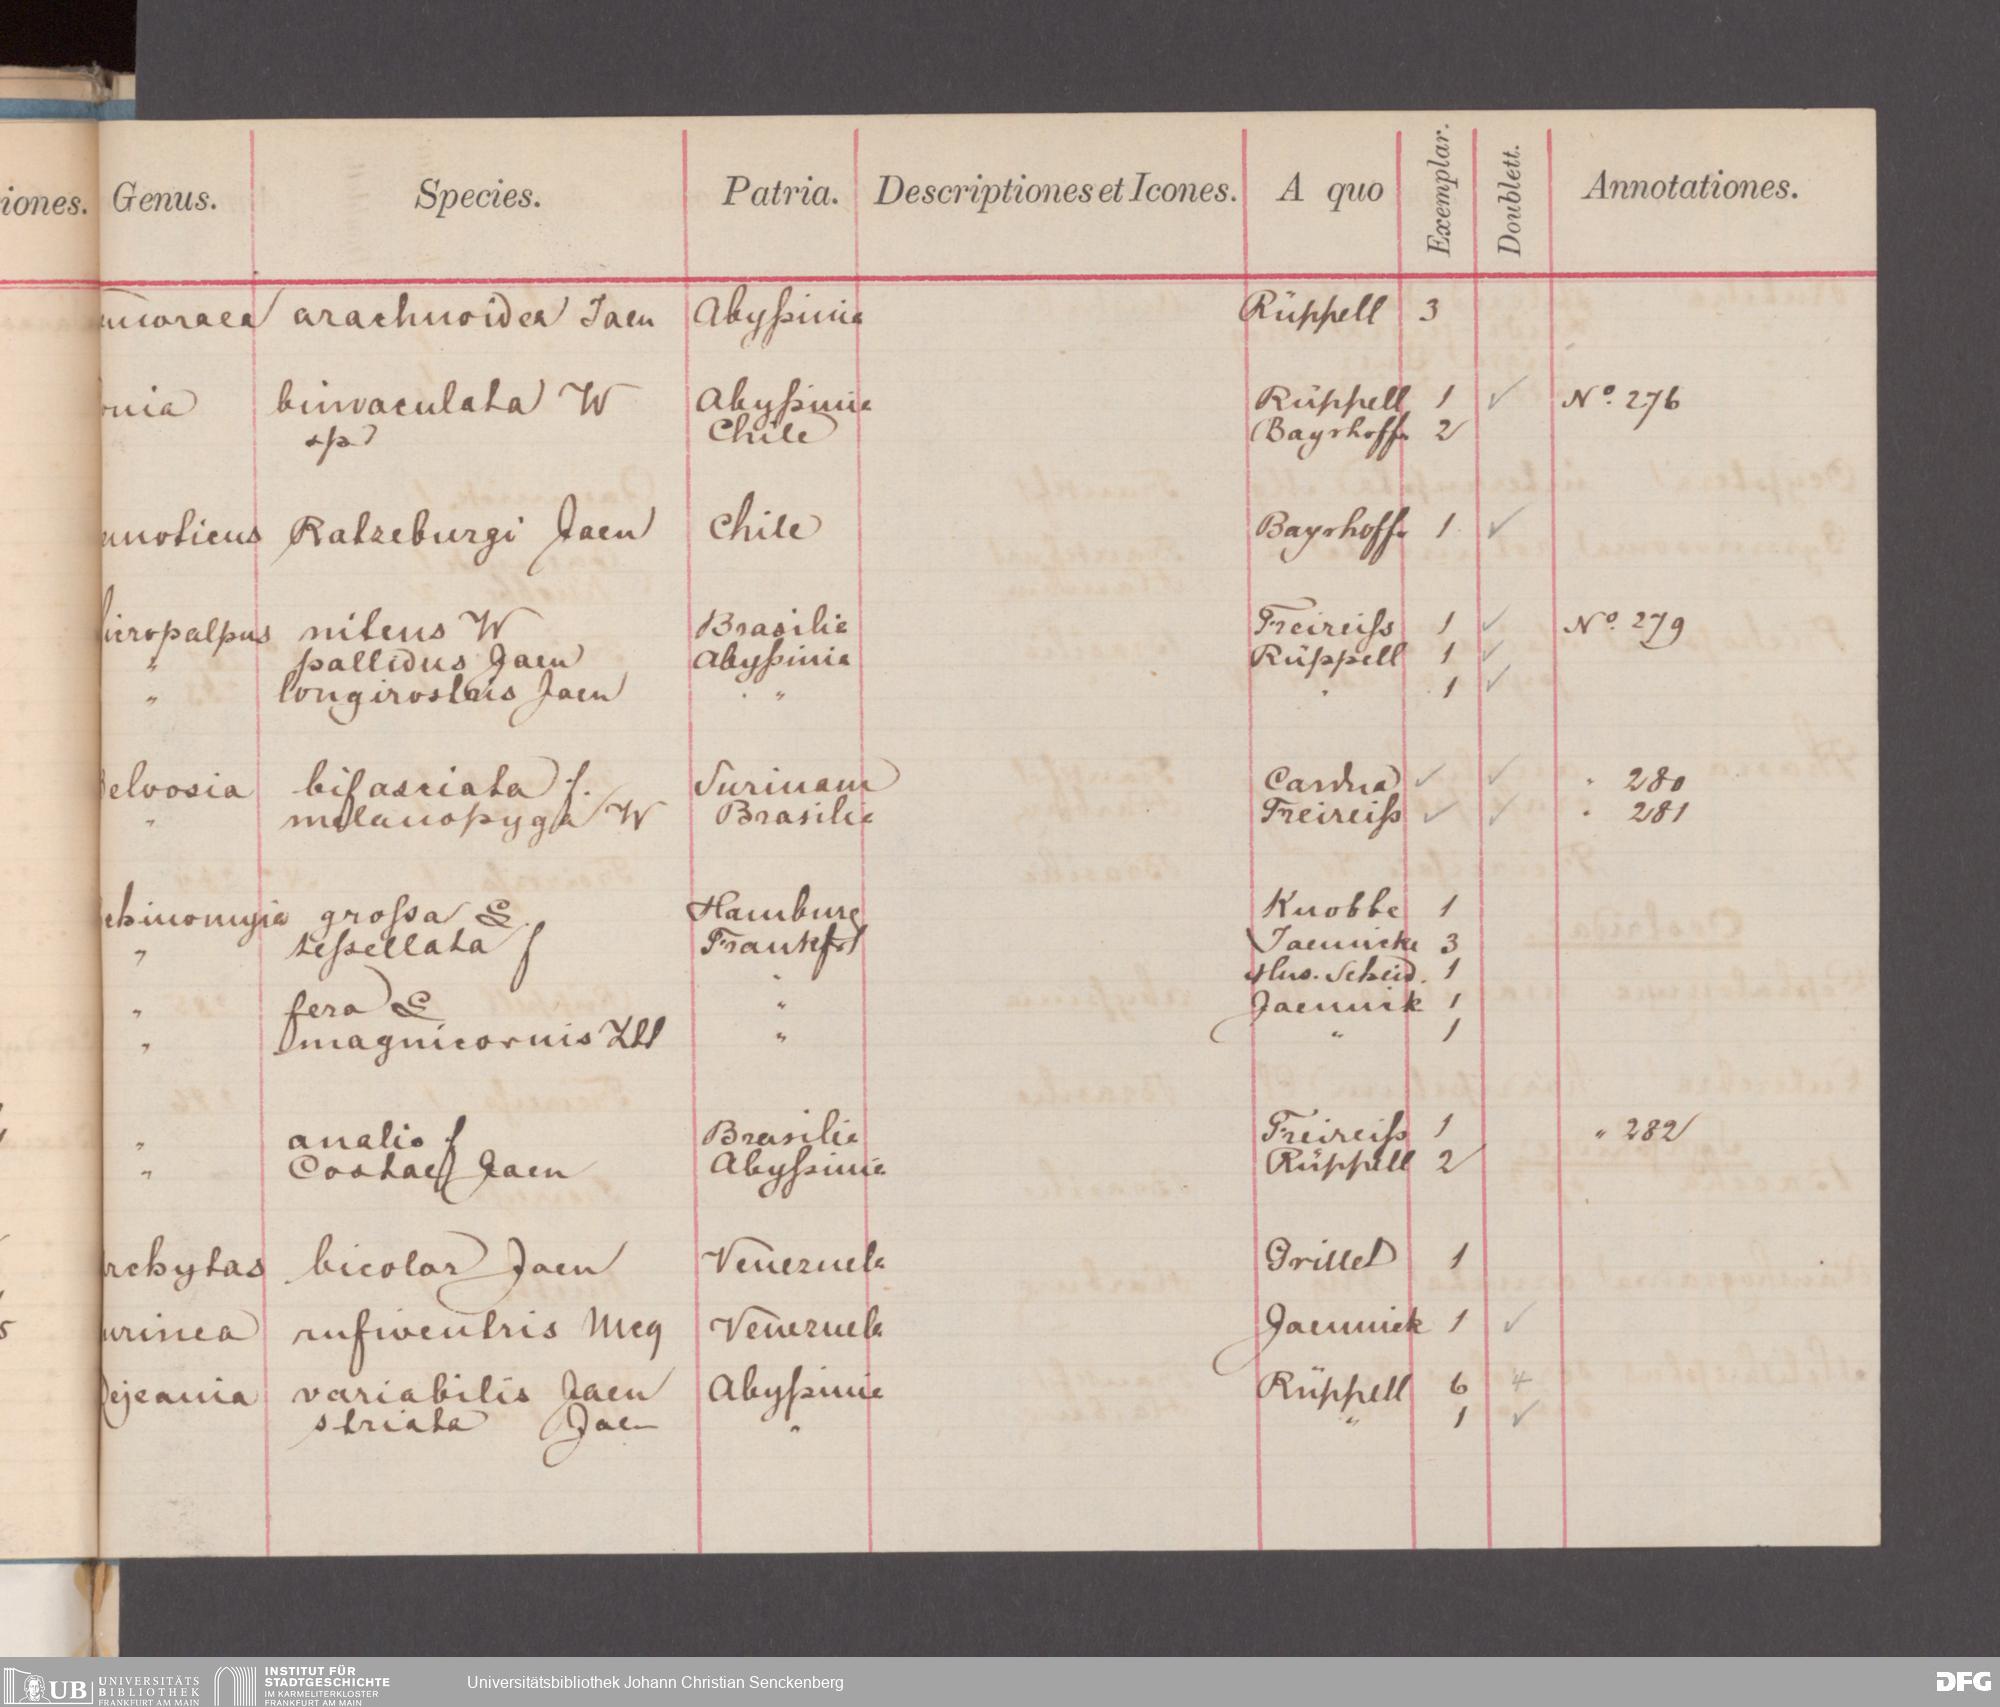 iones. Genus. Species. Patria. Descriptiones et Icones. A quo Exemplar. Doublett. Annotationes.
arachnoidea Jaen Abyßinie Rüppell 3
nia bimaculata W Abyßinie Rüppell 1 ✓ No. 276
sp Chile Bayrhoffr 2
noticus Ratzeburgi Jaen Chile Bayrhoffr 1 ✓
hiropalpus nitens W Brasilie Freireiß 1 ✓ No. 279
" pallidus Jaen Abyßinie Rüppell 1 ✓
" longirostris Jaen " " 1 ✓
elvosia bifasciata f. Surinam ✓ ✓ " 280
" melanopyga W Brasilie Freireiß ✓ ✓ " 281
chinomyia großa L. Hamburg Knobbe 1
" teßellata f Frankfrt Jaennicke 3
" Mus. Scheid. 1
" fera L " Jaennik 1
" magnicornis Ztt " " 1
" analis f Brasilie Freireiß 1 " 282
" Costae Jaen Abyßinie Rüppell 2
rchytas bicolor Jaen Venezuela Grillet 1
urinea rufiventris Mcq Venezuela Jaennick 1 ✓
ejeania variabilis Jaen Abyßinie Rüppell 6 4
striata Jaen " " 1 ✓
UB UNIVERSITÄTS BIBLIOTHEK FRANKFURT AM MAIN
INSTITUT FÜR STADTGESCHICHTE IM KARMELITERKLOSTER FRANKFURT AM MAIN
Universitätsbibliothek Johann Christian Senckenberg
DFG